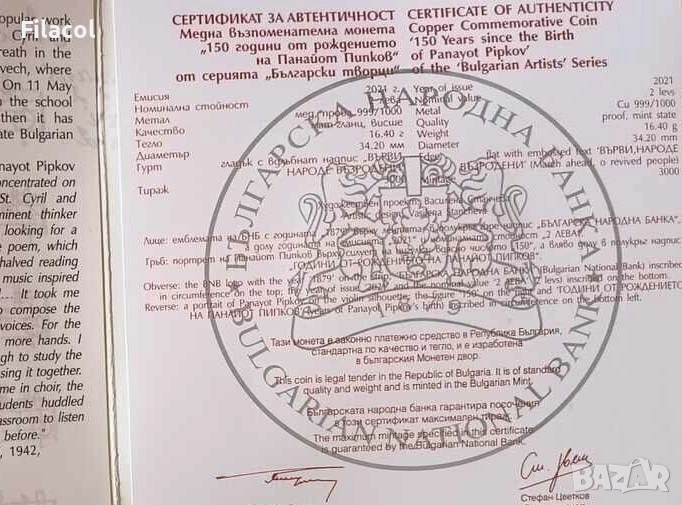 Filacol
popular work
Cyril and
reath in the
vech, where
On 11 May
the school
then it has
ate Bulgarian
nayot Pipkov
oncentrated on
St. Cyril and
minent thinker
looking for a
e poem, which
halved reading
music inspired
"... It took me
o compose the
voices. For the
more hands. I
ugh to study the
sing it together.
me in choir, the
udents huddled
assroom to listen
before."
, 1942,
СЕРТИФИКАТ ЗА АВТЕНТИЧНОСТ
Медна възпоменателна монета
„150 години от рождението
на Панайот Пипков"
от серията „Български творци"
CERTIFICATE OF AUTHENTICITY
Copper Commemorative Coin
'150 Years since the Birth
of Panayot Pipkov'
of the 'Bulgarian Artists' Series
Емисия 2021 г. Year of issue 2021
Номинална стойност 2 лева Nominal value 2 levs
Метал мед, проба 999/1000 Metal Cu 999/1000
Качество мат-гланц, висше Quality proof, mint state
Тегло 16.40 г Weight 16.40 g
Диаметър 34.20 мм Diameter 34.20 mm
Гурт гладък с вдлъбнат надпис „ВЪРВИ, Edge flat with embossed text 'ВЪРВИ, НАРОДЕ
НАРОДЕ ВЪЗРОДЕНИ" ВЪЗРОДЕНИ' (March ahead, o revived people)
Тираж 3000 Mintage 3000
Художествен проект: Василена Станчева
Artistic design: Vasilena Stancheva
Лице: емблемата на БНБ с годината „1879" върху лентата, в полукръг горе надпис „БЪЛГАРСКА НАРОДНА БАНКА",
долу годината на емисията „2021" и номиналната стойност „2 ЛЕВА".
Гръб: портрет на Панайот Пипков върху силует на цигулка, вдясно числото „150", а вляво долу в полукръг надпис
„ГОДИНИ ОТ РОЖДЕНИЕТО НА ПАНАЙОТ ПИПКОВ".
Obverse: the BNB logo with the year '1879' on the strip; 'БЪЛГАРСКА НАРОДНА БАНКА' (Bulgarian National Bank) inscribed
in circumference on the top; the year of issue '2021' and the nominal value '2 ЛЕВА' (2 levs) inscribed on the bottom.
Reverse: a portrait of Panayot Pipkov on the violin silhouette; the figure '150' on the right and 'ГОДИНИ ОТ РОЖДЕНИЕТО
НА ПАНАЙОТ ПИПКОВ' (years of Panayot Pipkov's birth) inscribed in circumference on the bottom left.
Тази монета е законно платежно средство в Република България,
стандартна по качество и тегло, и е изработена
в българския Монетен двор.
This coin is legal tender in the Republic of Bulgaria. It is of standard
quality and weight and is minted in the Bulgarian Mint.
Българската народна банка гарантира посочения
в този сертификат максимален тираж.
The maximum mintage specified in this certificate
is guaranteed by the Bulgarian National Bank.
БЪЛГАРСКА НАРОДНА БАНКА
BULGARIAN NATIONAL BANK
Стефан Цветков
BAZAR